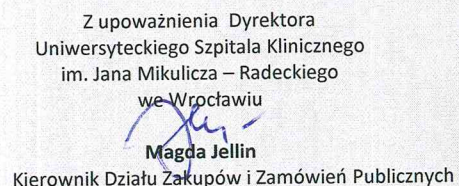 Z upoważnienia Dyrektora
Uniwersyteckiego Szpitala Klinicznego
im. Jana Mikulicza – Radeckiego
we Wrocławiu
Magda Jellin
Kierownik Działu Zakupów i Zamówień Publicznych